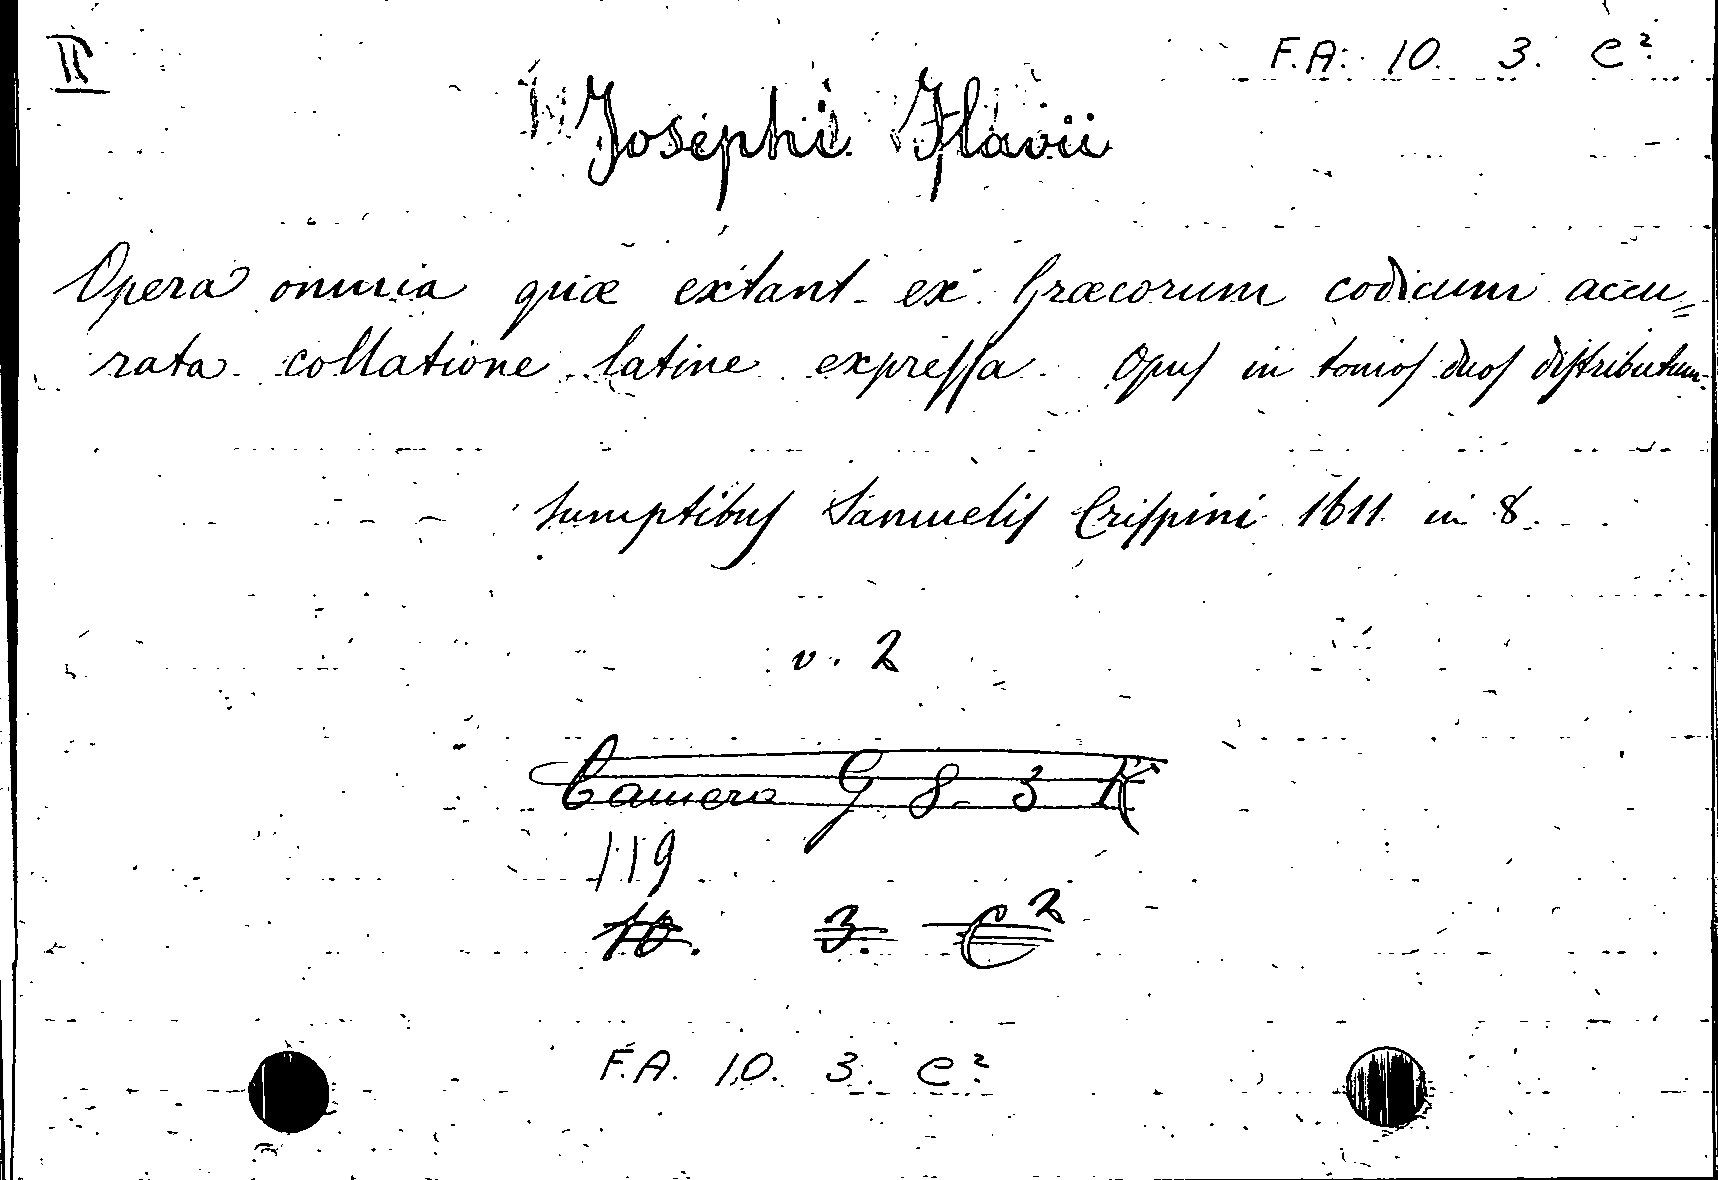 II
F.A. 10. 3. C²
Josephi Flavii
Opera omnia quæ extant ex Græcorum codicum accu=
rata collatione latine expreſſa. Opuſ in tomoſ duoſ diſtributum.
ſumptibuſ Samueliſ Criſpini 1611 in 8.
v. 2
Camera G 8. 3 K
119
10. 3. C²
F.A. 10. 3. C²